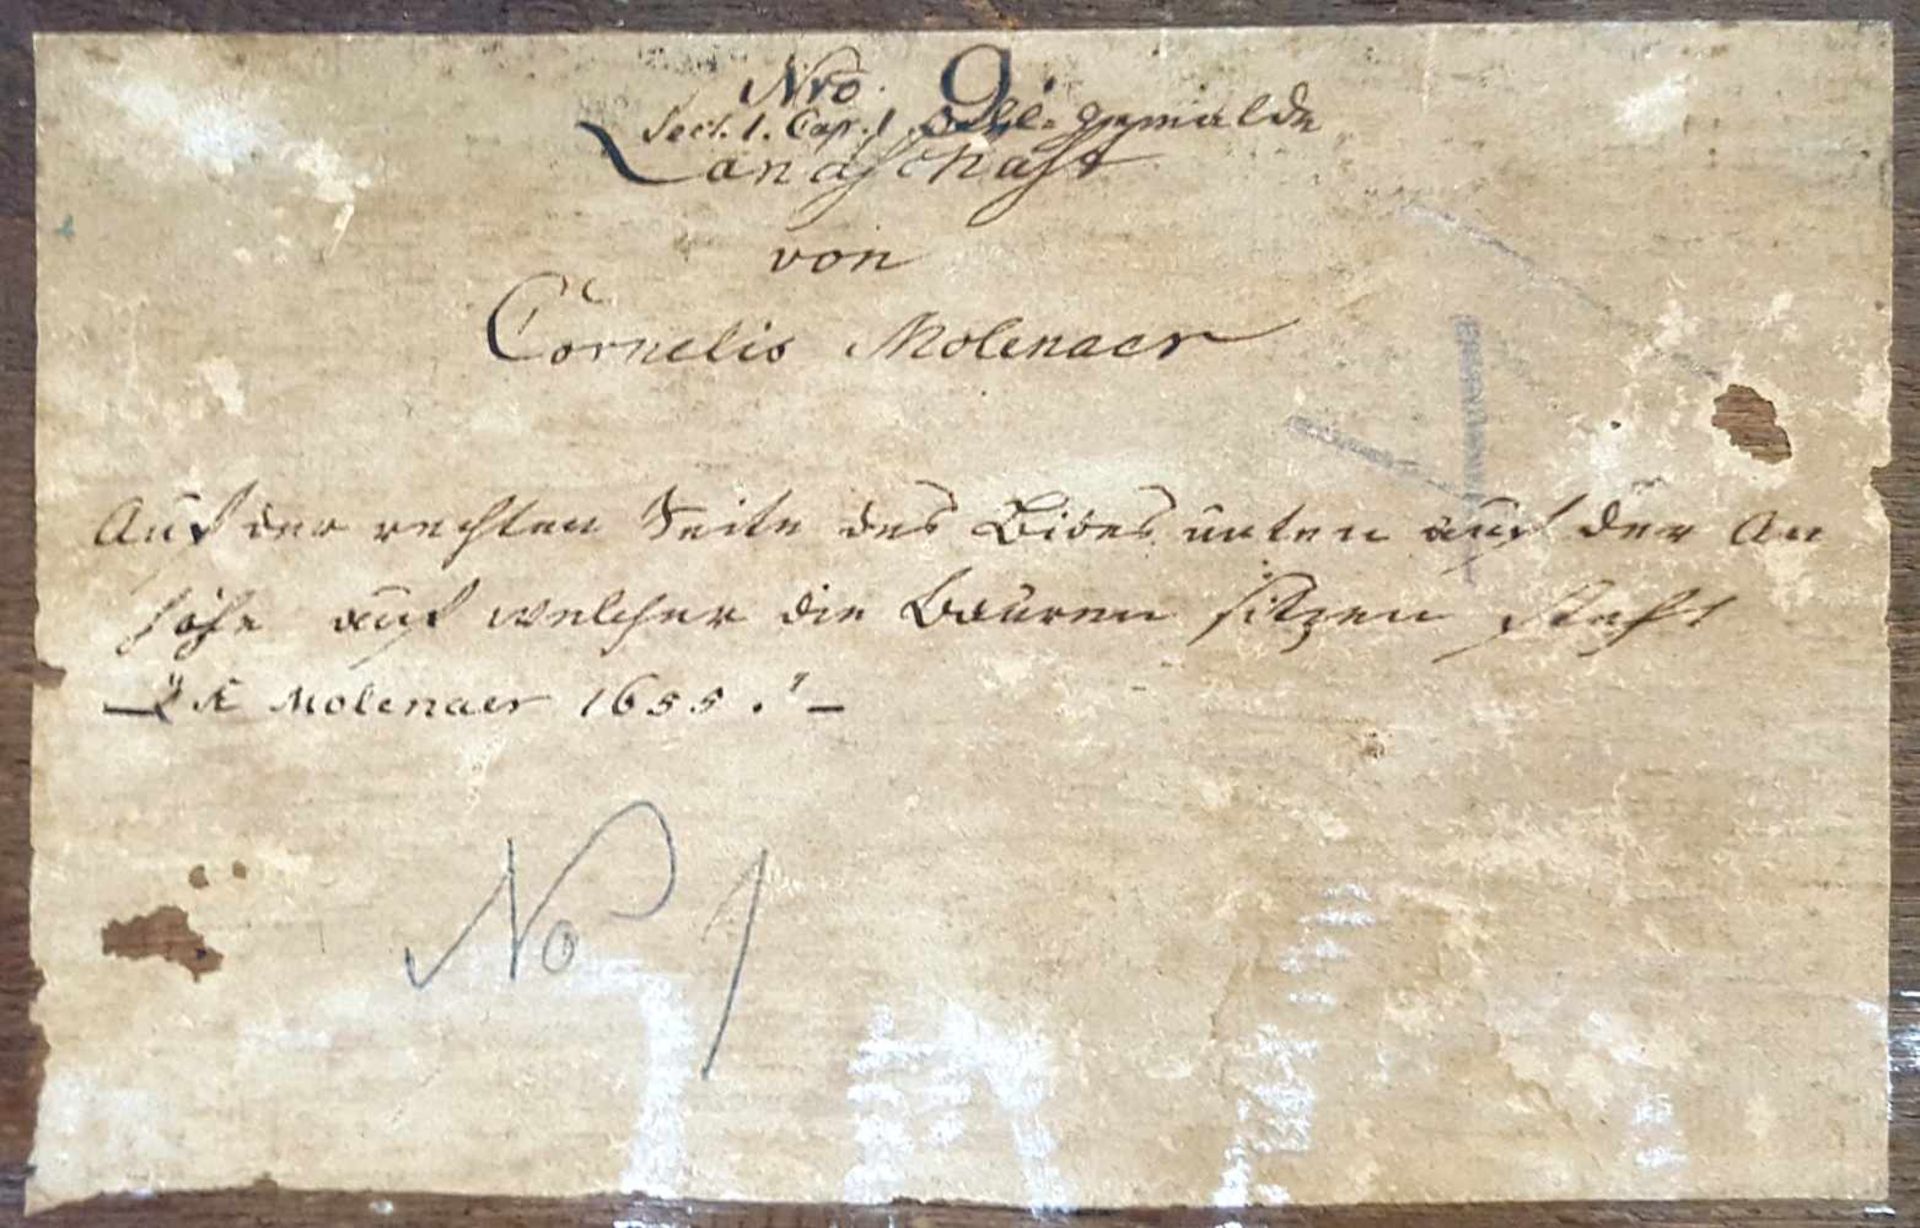 Nro. 9.
Sect. 1. Cap. 1 Oehl-gemälde
Landschaft
von
Cornelis Molenaer
Auf der rechten Seite des Bides unten auf der An
höhe auf welcher die Bauren sitzen steht
„K Molenaer 1655." –
No 1